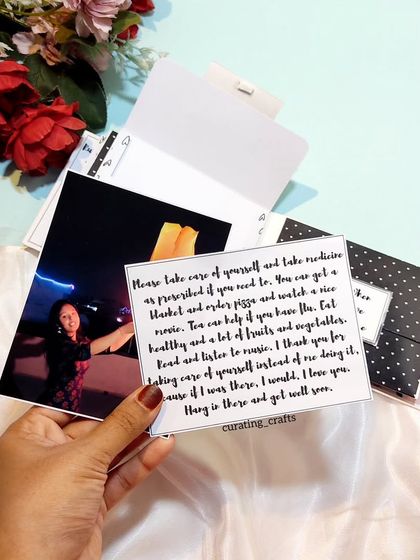 Please take care of yourself and take medicine
as prescribed if you need to. You can get a
blanket and order pizza and watch a nice
movie. Tea can help if you have Flu. Eat
healthy and a lot of fruits and vegetables.
Read and listen to music. I thank you for
taking care of yourself instead of me doing it,
cause if I was there, I would. I love you.
Hang in there and get well soon.
curating_crafts